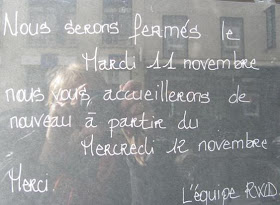 Nous serons fermés le
Mardi 11 novembre
nous vous accueillerons de
nouveau à partir du
Mercredi 12 novembre
Merci
L'équipe